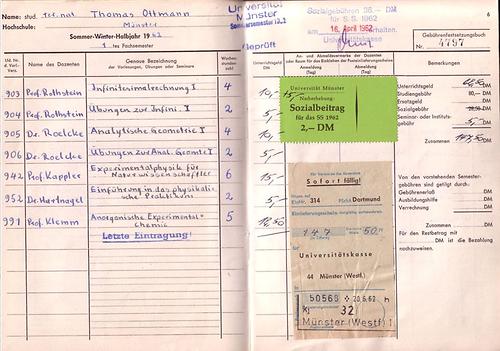 Name: stud. rer. nat. Thomas Ottmann
Hochschule: Münster
Sommer-Winter-Halbjahr 1962
1. tes Fachsemester
Universität
Münster
Sommersemester
Geprüft
Sozialgebühren 36,— DM
für S.S. 1962
16. April 1962 erhalten.
Universitätskasse
6
Gebührenfestsetzungsbuch
Nr. 4797
Lfd. Nr. d. Verl.-Verz.
Name des Dozenten
Genaue Bezeichnung
der Vorlesungen, Übungen oder Seminare
Wochenstundenzahl
Unterrichtsgeld DM
An- und Abmeldevermerke der Dozenten
oder Raum für das Einkleben der Posteinlieferungsscheine
Anmeldung (Tag)
Abmeldung (Tag)
Bemerkungen
903 Prof. Rothstein Infinitesimalrechnung I 4 10,-
904 Prof. Rothstein Übungen zur Infini. I 2 5,-
905 Dr. Roelcke Analytische Geometrie I 4
906 Dr. Roelcke Übungen zur Anal. Geomtr. I 2 5,-
942 Prof. Kappler Experimentalphysik für Naturwissenschaftler 6
952 Dr. Hartnagel Einführung in das physikalische Praktikum 2 5,-
991 Prof. Klemm Anorganische Experimental=chemie 5 12,50
Letzte Eintragung!
Universität Münster
Nacherhebung:
Sozialbeitrag
für das SS 1962
2,— DM
Unterrichtsgeld DM
Studiengebühr 80,— DM
Ersatzgeld DM
Sozialgebühr DM
Seminar- oder Institutsgebühr 5,- DM
Zusammen DM
Von den vorstehenden Semestergebühren sind getilgt durch:
Gebührenerlaß DM
Ausbildungshilfe DM
Verrechnung DM
Zusammen DM
Für den Restbetrag mit
DM ist die Bezahlung
nachzuweisen.
Sofort fällig!
314 Dortmund
Einlieferungsschein
147 50
für
Universitätskasse
44 Münster (Westf.)
50568 20.6.62
32
Münster (Westf)